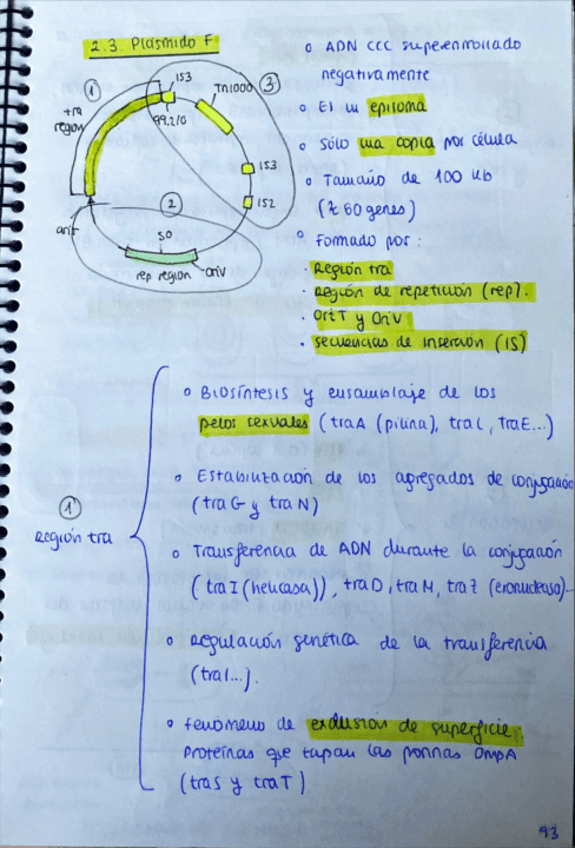 2.3. Plásmido F
IS3
Tn1000
③
①
tra
region
99.2/0
IS3
IS2
②
oriT
50
rep region
oriV
ADN CCC superenrollado
negativamente
Es un episoma
Sólo una copia por célula
Tamaño de 100 Kb
60 genes)
Formado por:
· Región tra
· Región de repetición (rep).
· OriT y OriV
· secuencias de inserción (IS)
①
Región tra
Biosíntesis y ensamblaje de los
pelos sexuales (traA (pilina), traL, TraE...)
Estabilización de los agregados de conjugación
(traG y traN)
Transferencia de ADN durante la conjugación
(traI (helicasa)), traD, traM, traZ (exonucleasa)...
Regulación genética de la transferencia
fenómeno de exclusión de superficie.
Proteínas que tapan las porinas OmpA
(traS y traT)
43